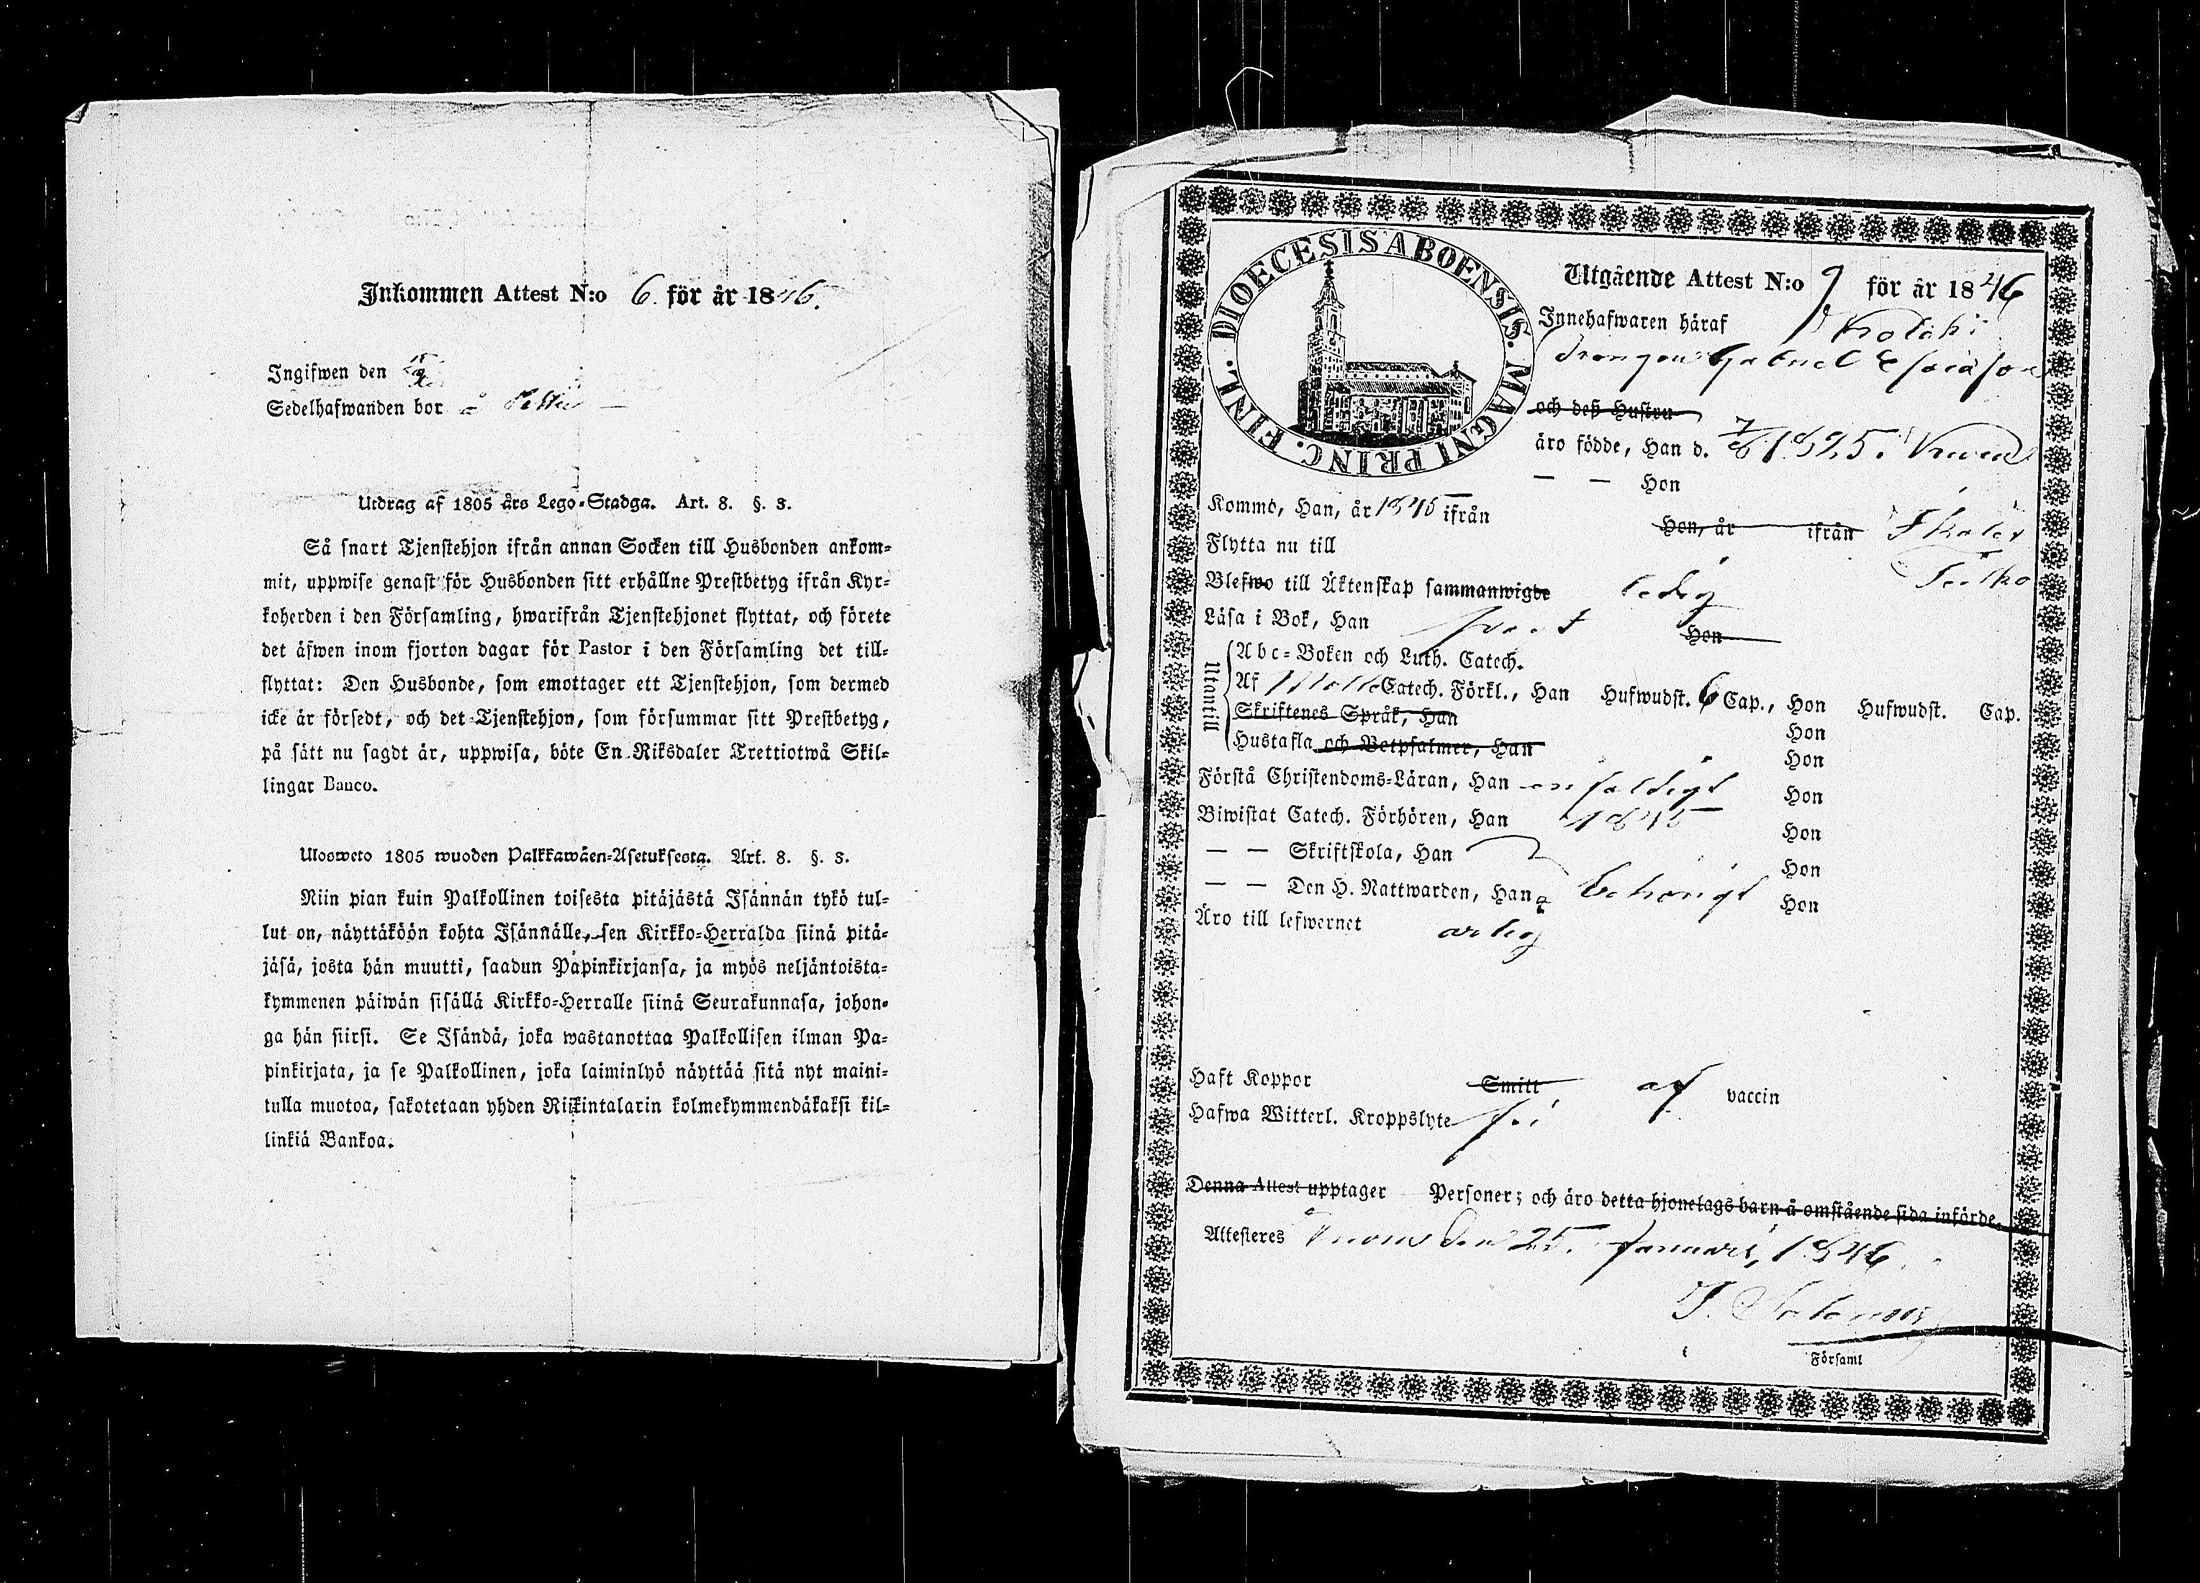 Inkommen Attest N:o 6. för år 1846.
Ingifwen den
Sedelhafwanden bor å
Utdrag af 1805 års Lego-Stadga. Art. 8. §. 3.
Så snart Tjenstehjon ifrån annan Socken till Husbonden ankom-
mit, uppwise genast för Husbonden sitt erhållne Prestbetyg ifrån Kyr-
koherden i den Församling, hwarifrån Tjenstehjonet flyttat, och förete
det äfwen inom fjorton dagar för Pastor i den Församling det till-
flyttat: Den Husbonde, som emottager ett Tjenstehjon, som dermed
icke är försedt, och det Tjenstehjon, som försummar sitt Prestbetyg,
på sätt nu sagdt är, uppwisa, böte En Riksdaler Trettiotwå Skil-
lingar Banco.
Ulosweto 1805 wuoden Palkkawäen-Asetuksesta. Art. 8. §. 3.
Niin pian kuin Palkollinen toisesta pitäjästä Isännän tykö tul-
lut on, näyttäköön kohta Isännälle, sen Kirkko-Herralda siinä pitä-
jäsä, josta hän muutti, saadun Papinkirjansa, ja myös neljäntoista-
kymmenen päiwän sisällä Kirkko-Herralle siinä Seurakunnasa, johon-
ga hän siirsi. Se Isändä, joka wastanottaa Palkollisen ilman Pa-
pinkirjata, ja se Palkollinen, joka laiminlyö näyttää sitä nyt maini-
tulla muotoa, sakotetaan yhden Riikintalarin kolmekymmendäkaksi kil-
linkiä Bankoa.
DIOECESIS ABOENSIS. MAGNI PRINC. FINL.
Utgående Attest N:o 9 för år 1846
Innehafwaren häraf
Drengen Gabriel Esaiasson
och deß Hustru
äro födde, Han d. 7/8 1825.
— — Hon
Kommo, Han, år 1845 ifrån Hon, år ifrån
Flytta nu till
Blefwo till Äktenskap sammanwigde ledig
Läsa i Bok, Han svagt Hon
Utantill
Abc-Boken och Luth. Catech.
Af Catech. Förkl., Han Hufwudst. 6 Cap., Hon Hufwudst. Cap.
Skriftenes Språk, Han Hon
Hustafla och Botpsalmer, Han Hon
Förstå Christendoms-Läran, Han enfaldigt Hon
Biwistat Catech. Förhören, Han 1845 Hon
— — Skriftskola, Han Hon
— — Den H. Nattwarden, Han behörigt Hon
Äro till lefwernet ärlig
Haft Koppor Smitt af vaccin
Hafwa Witterl. Kroppslyte fri
Denna Attest upptager Personer; och äro detta hjonelags barn å omstående sida införde.
Attesteres den 25. Januari, 1846.
Församl